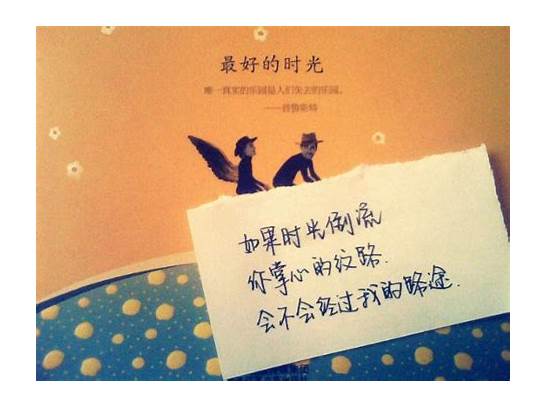 最好的时光
唯一真实的乐园是人们失去的乐园。
——普鲁斯特
如果时光倒流
你掌心的纹路
会不会经过我的路途.